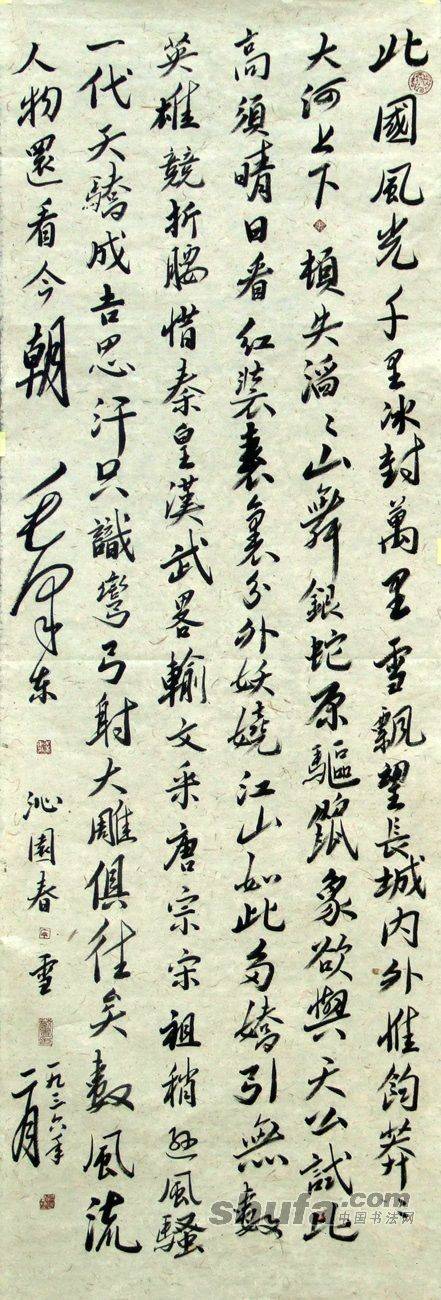 北國風光千里冰封萬里雪飄望長城内外惟餘莽〻
大河上下頓失滔〻山舞銀蛇原驅臘象欲與天公試比
高須晴日看紅裝素裹分外妖嬈江山如此多嬌引無數
英雄競折腰惜秦皇漢武畧輸文采唐宗宋祖稍遜風騷
一代天驕成吉思汗只識彎弓射大雕俱往矣數風流
人物還看今朝 毛澤东 沁園春 雪 一九三六年二月
shufa.com
中国书法网